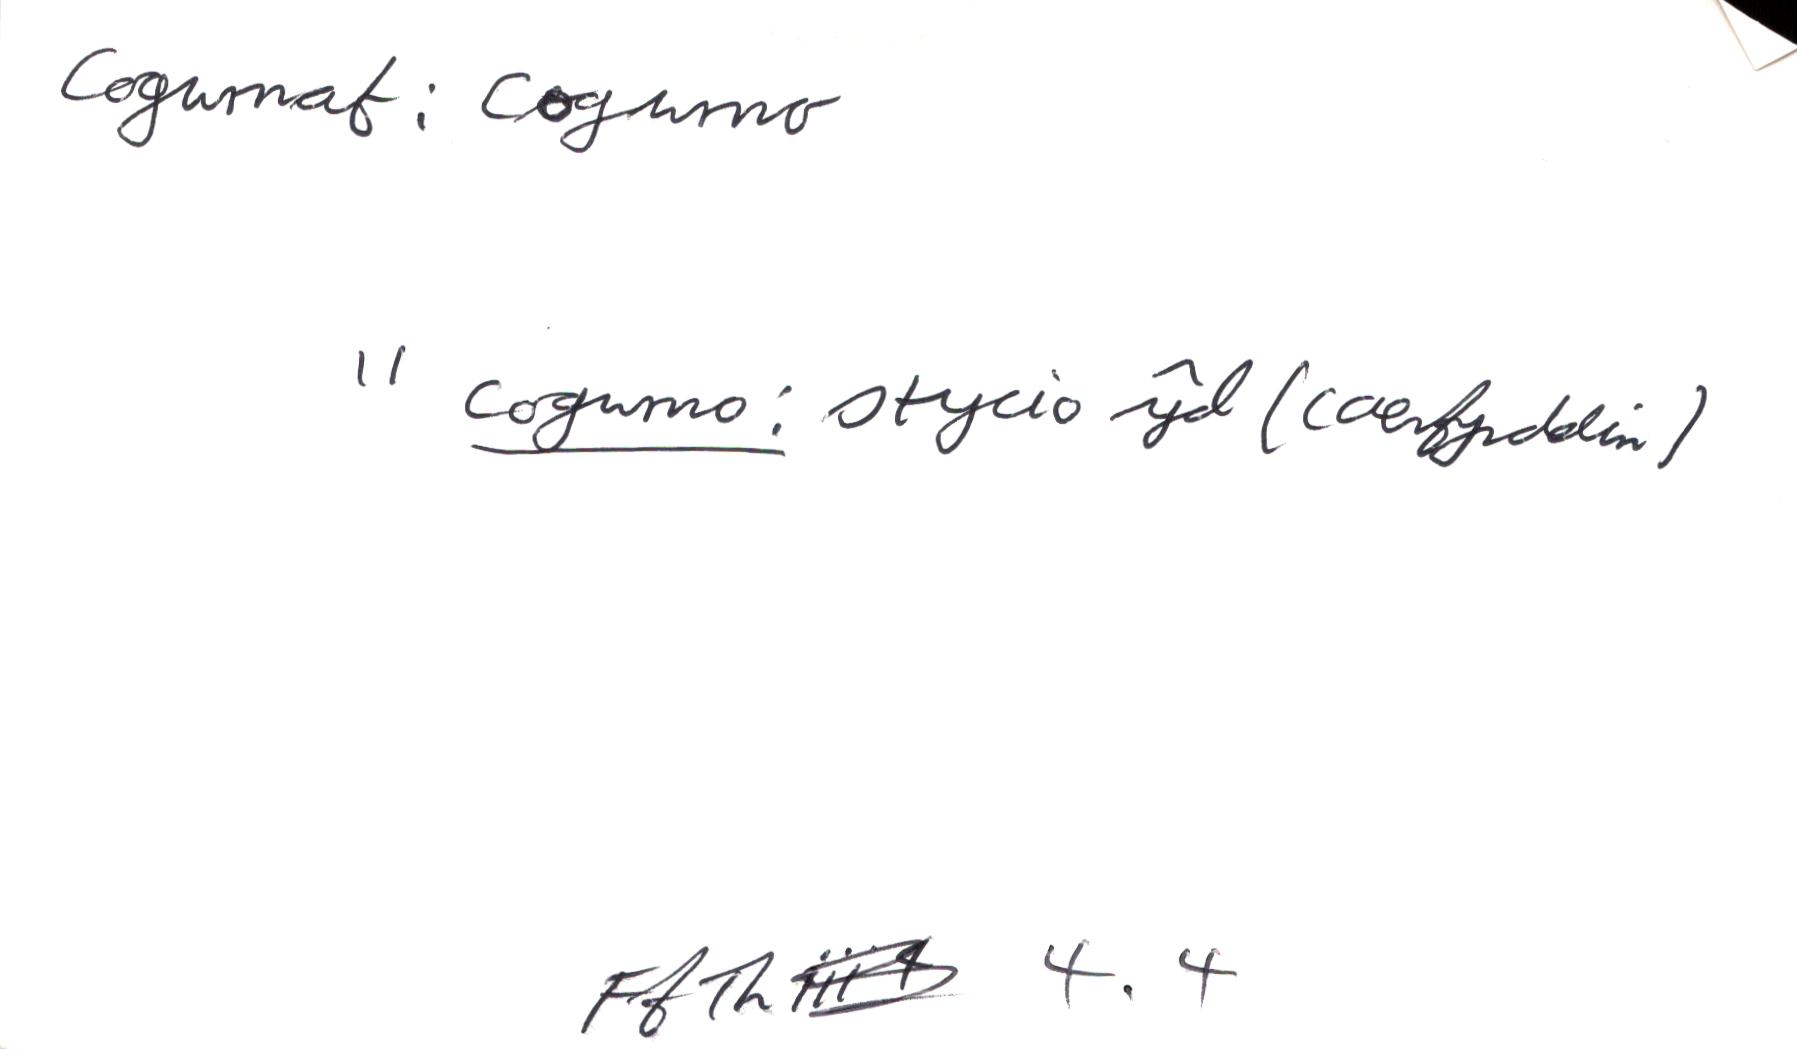 Cogurnaf: Cogurno
" cogurno: stycio ŷd (Caerfyrddin)
Ff Th 4.4